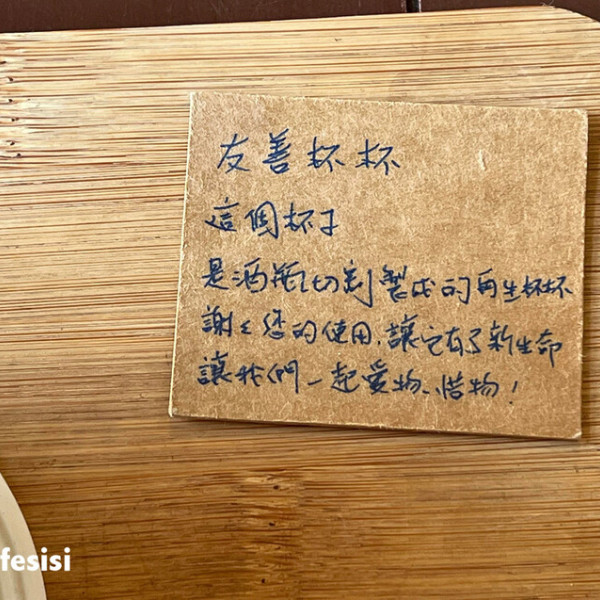 友善杯杯
這個杯子
是酒瓶切割製成的再生杯杯
謝々您的使用,讓它有了新生命
讓我們一起愛物、惜物!
fesisi